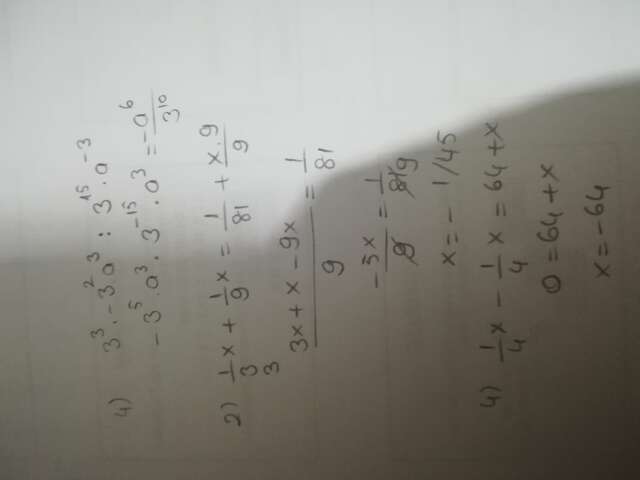 4) 3³ · -3² · a³ : 3¹⁵ · a⁻³
-3⁵ · a³ · 3⁻¹⁵ · a³ = -a⁶/3¹⁰
2) 1/3 x + 1/9 x = 1/81 + x·9/9
3
(3x + x - 9x)/9 = 1/81
-5x/9 = 1/81 9
x = - 1/45
4) 1/4 x - 1/4 x = 64 + x
0 = 64 + x
x = -64